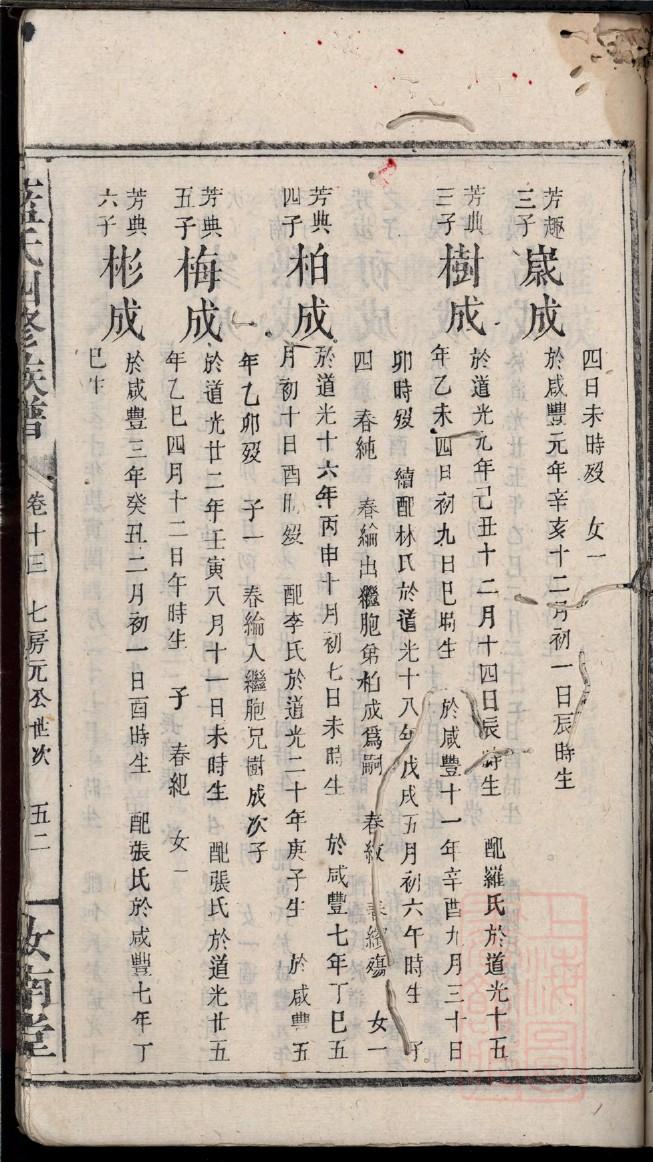 四日未時歿 女一
芳趣三子 嵗成 於咸豐元年辛亥十二月初一日辰時生
芳典三子 樹成 於道光元年己丑十二月十四日辰時生 配羅氏於道光十五
年乙未四日初九日巳時生 於咸豐十一年辛酉九月三十日
卯時歿 續配林氏於道光十八年戊戌五月初六午時生 子
四 春純 春綸出繼胞弟柏成爲嗣 春紋 春經殤 女一
芳典四子 柏成 於道光十六年丙申十月初七日未時生 於咸豐七年丁巳五
月初十日酉時歿 配李氏於道光二十年庚子生 於咸豐五
年乙卯歿 子一 春綸入繼胞兄樹成次子
芳典五子 梅成 於道光廿二年壬寅八月十一日未時生 配張氏於道光廿五
年乙巳四月十二日午時生 子 春紀 女一
芳典六子 彬成 於咸豐三年癸丑二月初一日酉時生 配張氏於咸豐七年丁
巳生
藍氏四修族譜 卷十三 七房元公世次 五二 汝南堂